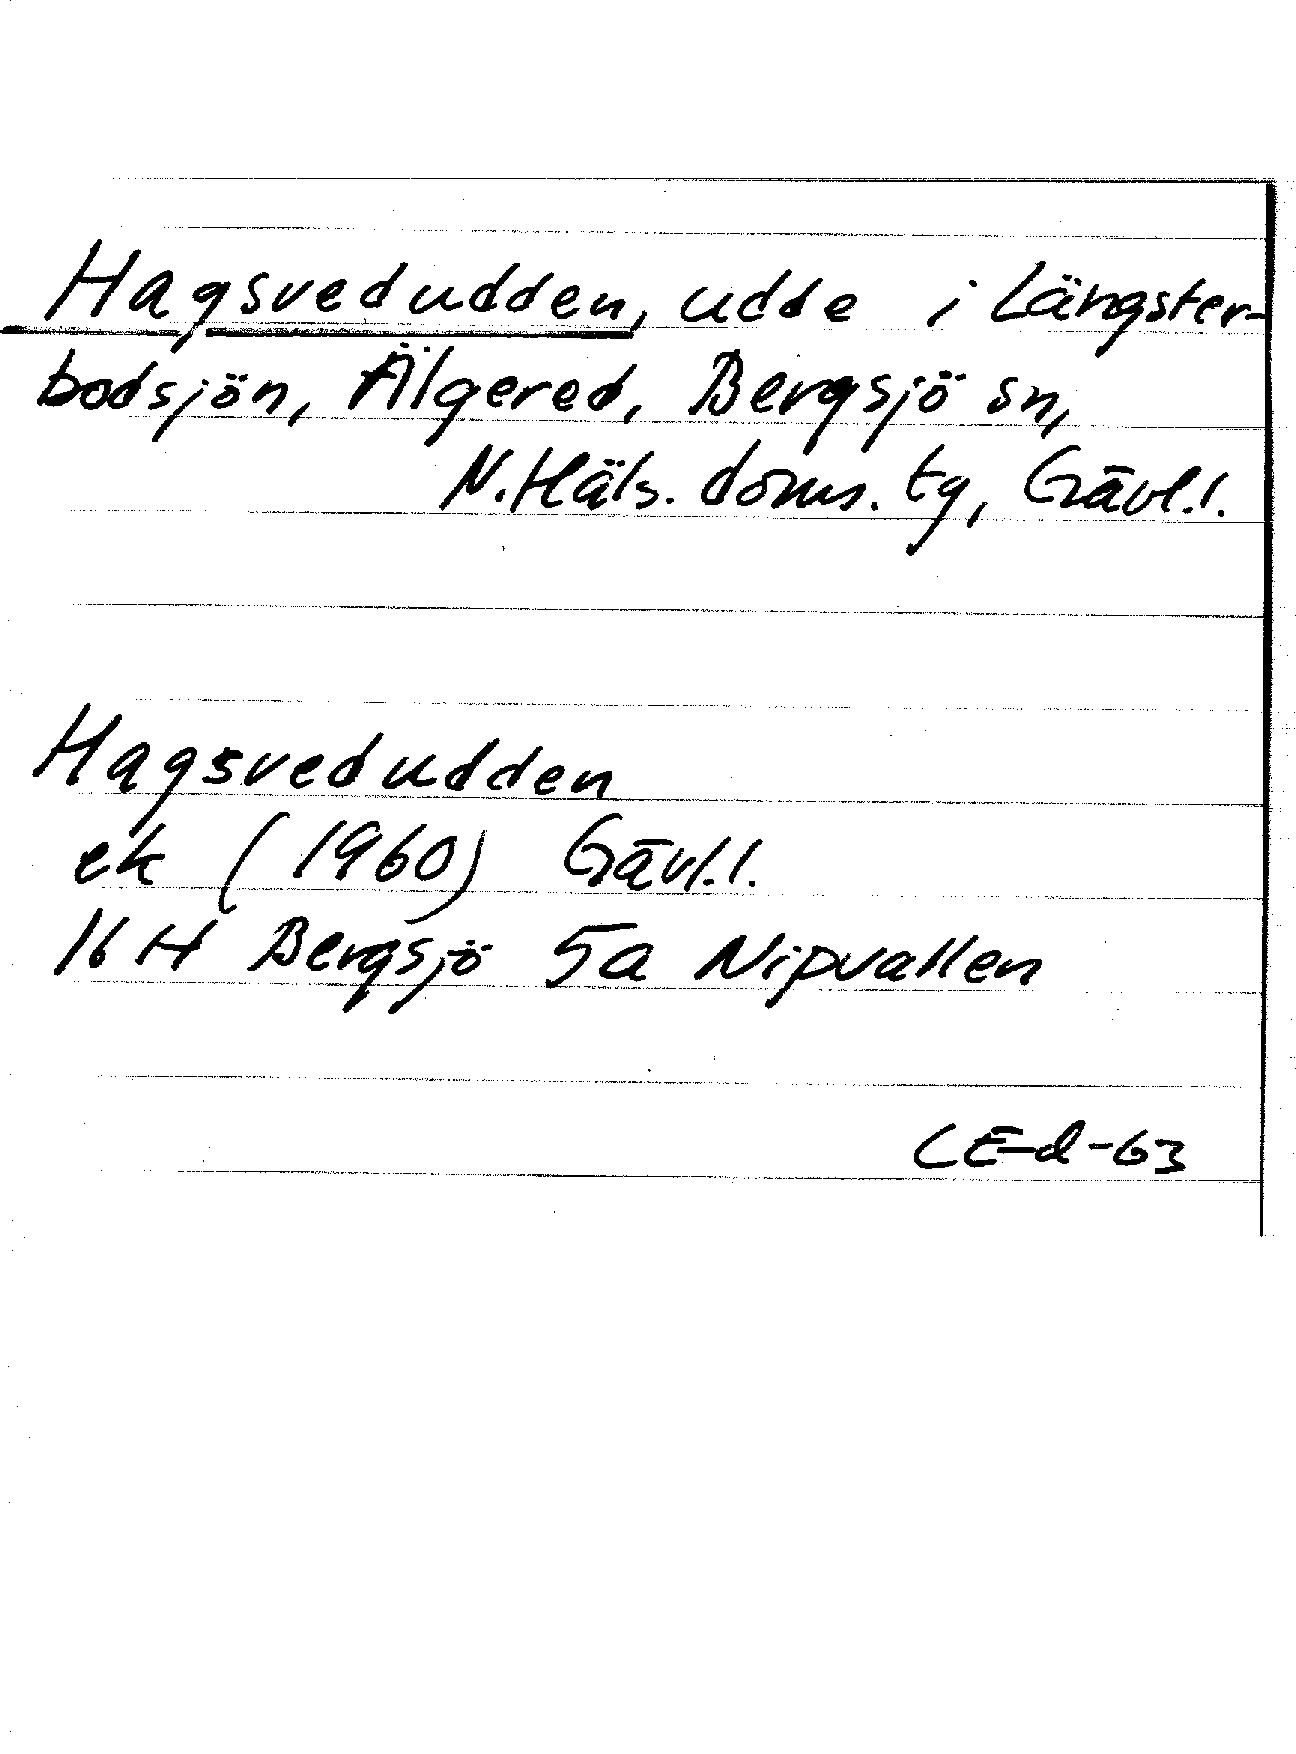 Hagsvedudden, udde i Längster-
bodsjön, Älgered, Bergsjö sn,
N. Häls. doms. tg, Gävl.l.
Hagsvedudden
ek (1960) Gävl.l.
16 H Bergsjö 5a Nipvallen
CE-d-63